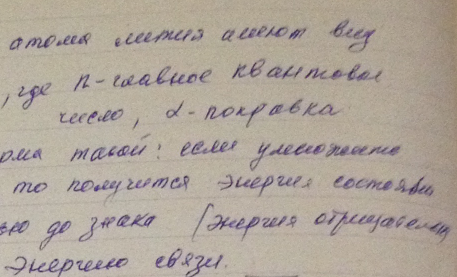 атома лития имеют вид
, где n-главное квантовое
число, α-поправка
ома такой: если умножить
то получится энергия состояни
ью до знака (энергия отрицательн
энергию связи.